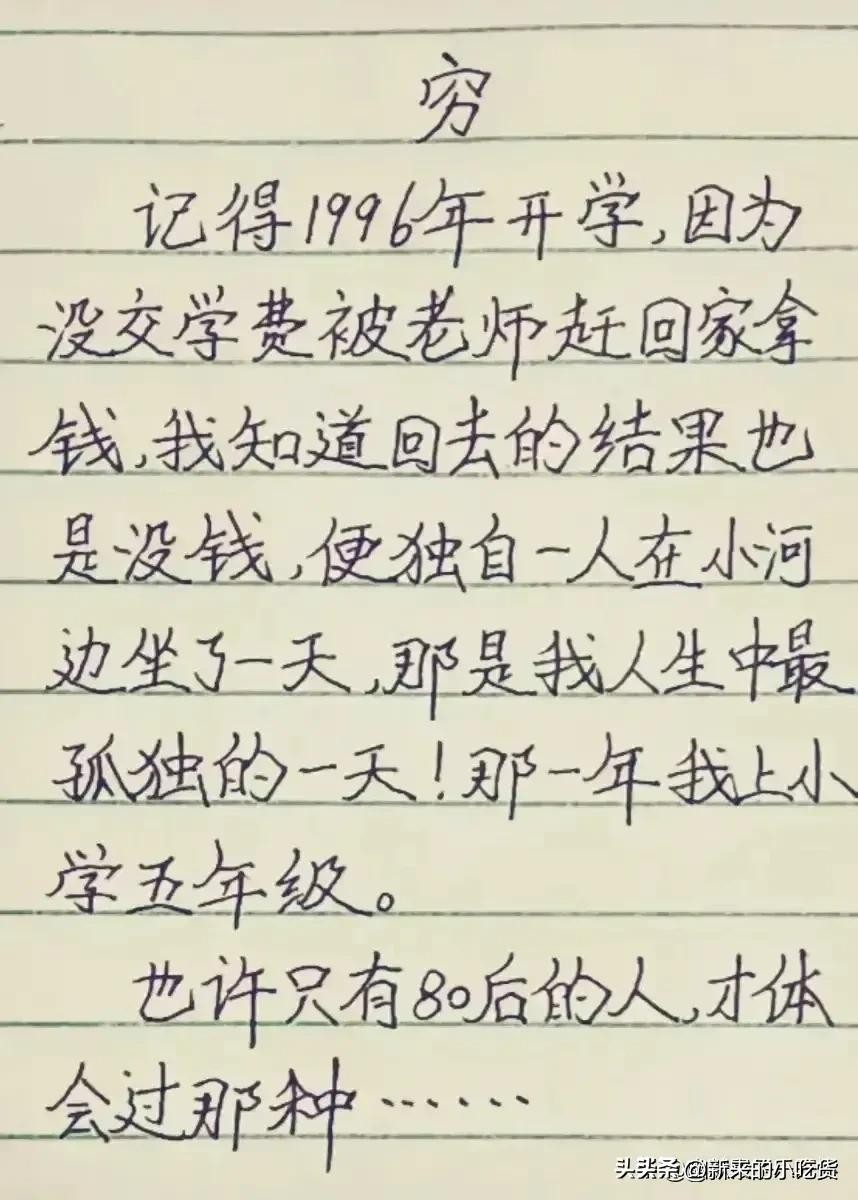 穷
记得1996年开学,因为
没交学费被老师赶回家拿
钱,我知道回去的结果也
是没钱,便独自一人在小河
边坐了一天,那是我人生中最
孤独的一天!那一年我上小
学五年级。
也许只有80后的人,才体
会过那种……
头条 @新来的小吃货